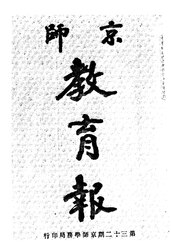 京師
教育報
第三十二期京師學務局印行